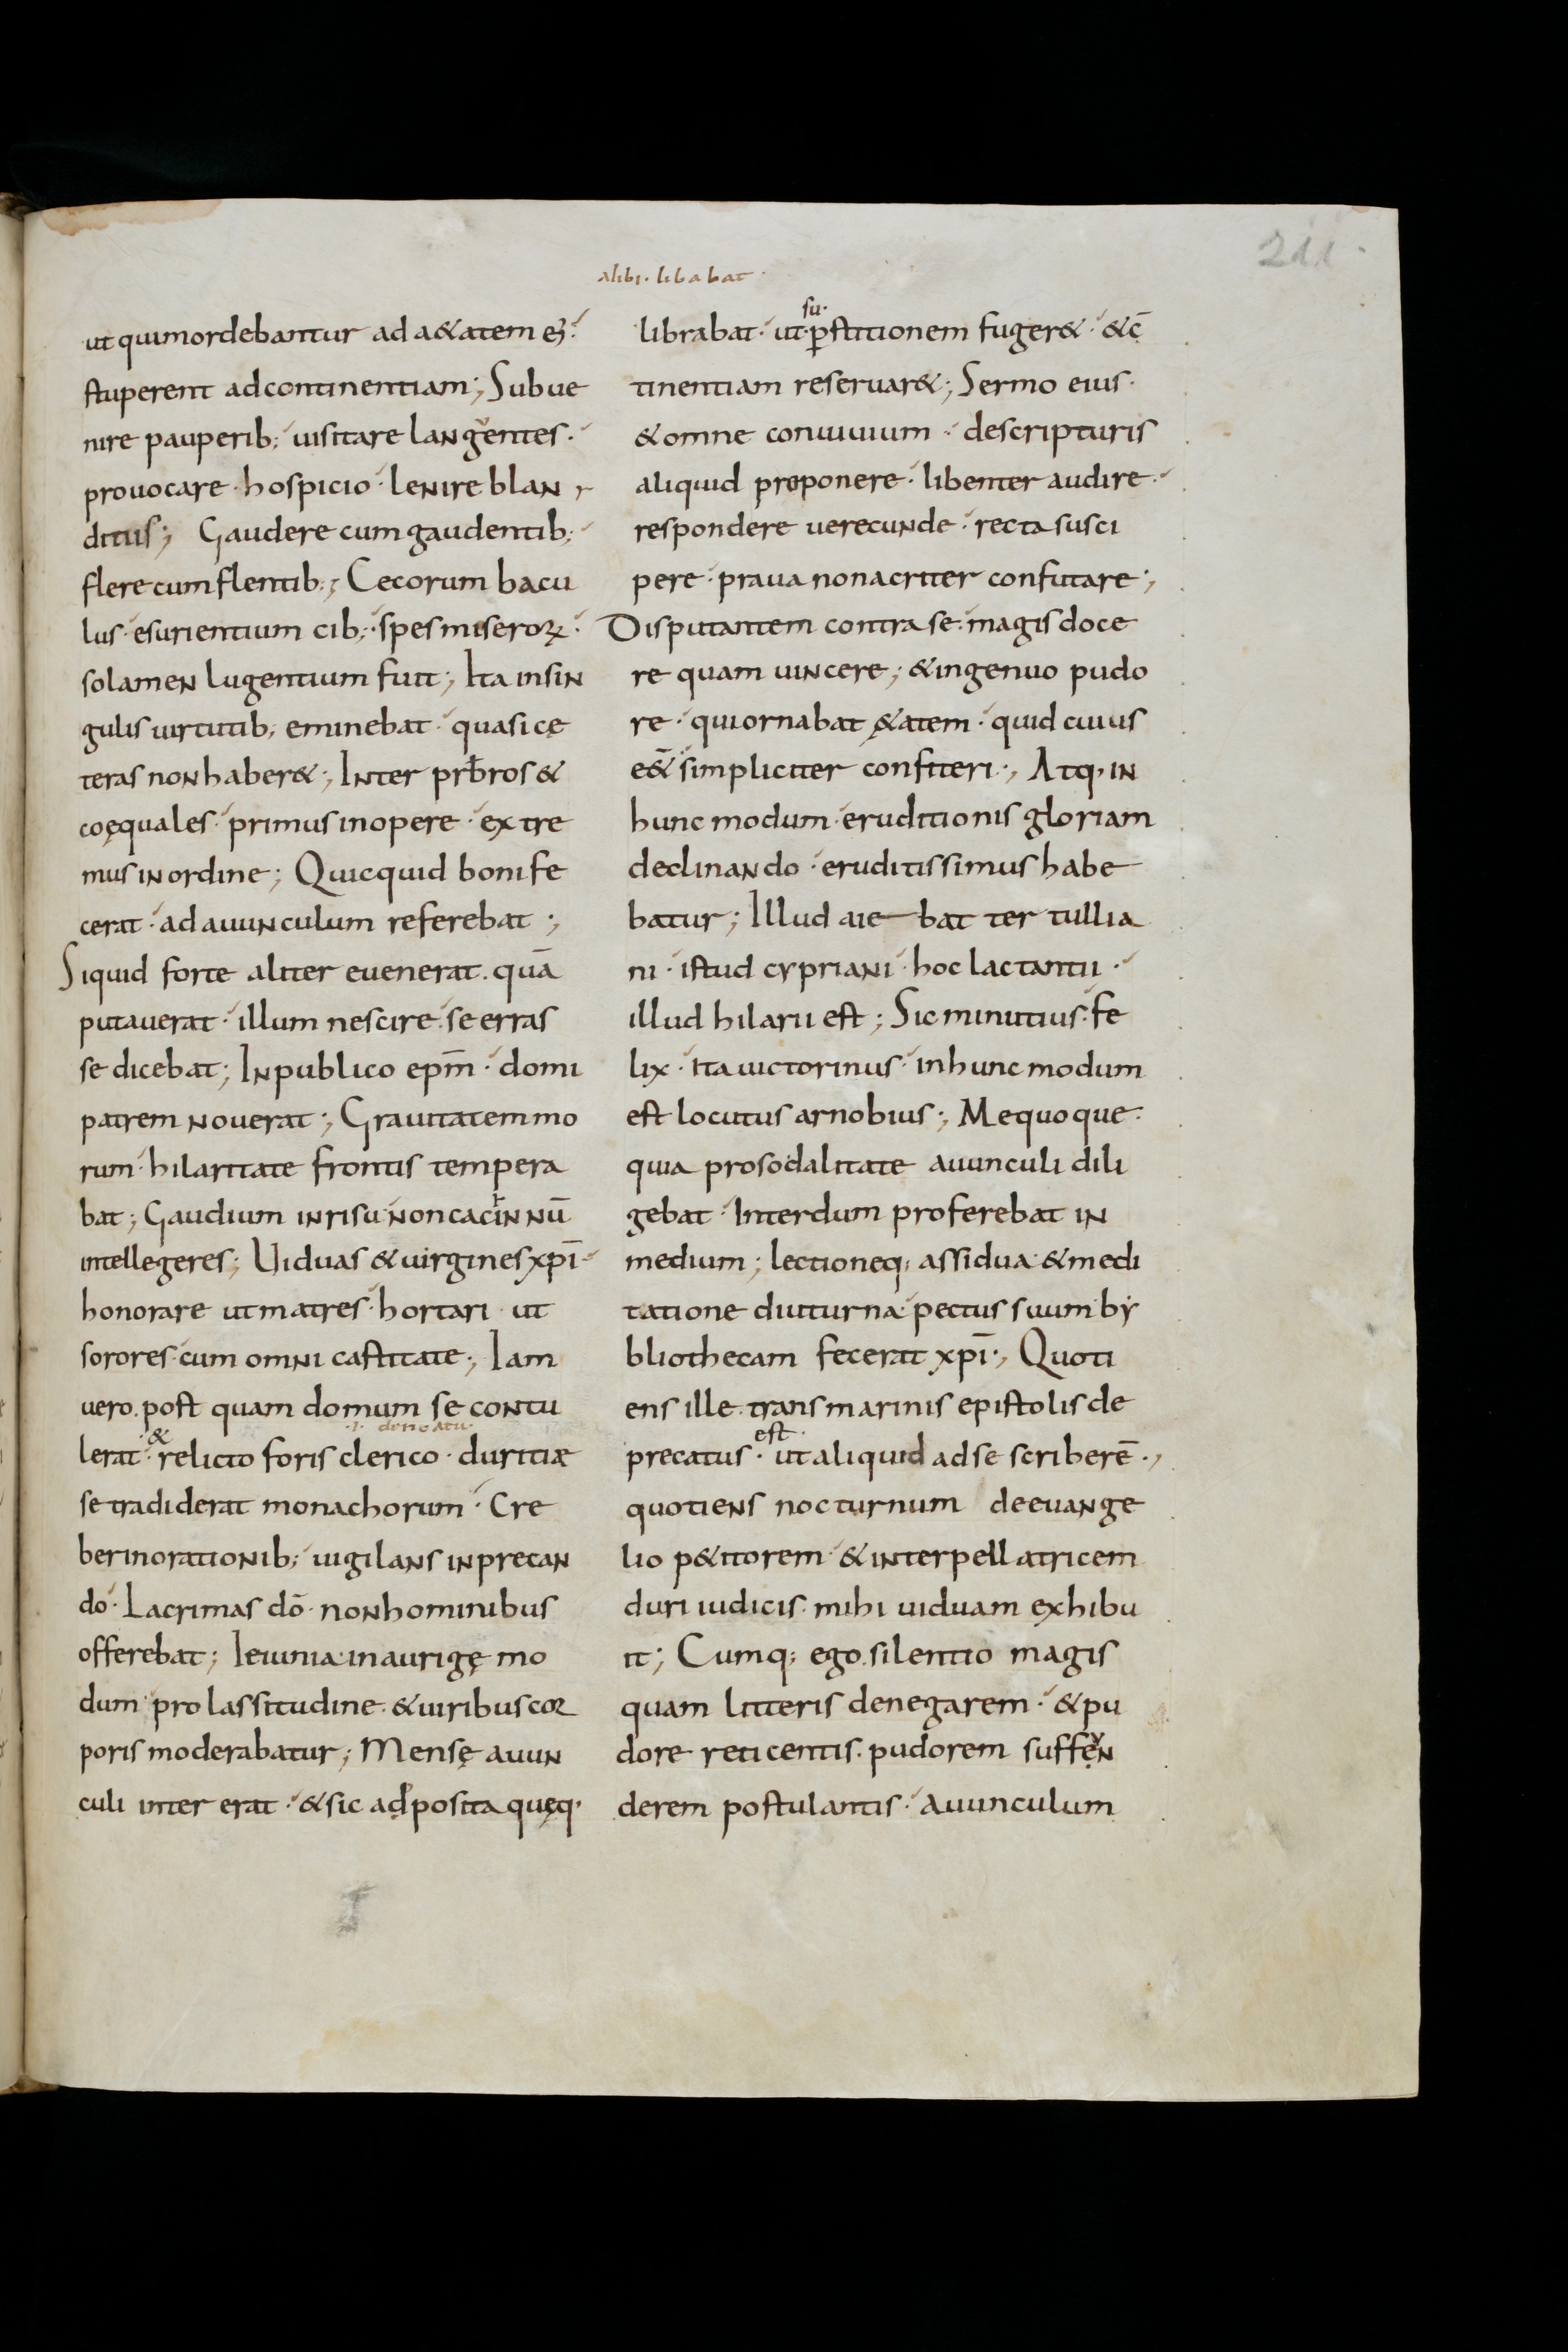 211
alibi · libabat ·
ut qui mordebantur ad a&atem ei᷒ ·
stuperent ad continentiam ; Subue
nire pauperib; uisitare languentes ·
prouocare · hospicio · lenire blan
ditiis ; Gaudere cum gaudentib;
flere cum flentib; ; Cecorum bacu
lus · esurientium cib; · spes miseroꝝ ·
solamen lugentium fuit ; Ita in sin
gulis uirtutib; eminebat · quasi cę
teras non haber& ; Inter prb̅ros &
coęquales · primus in opere · extre
mus in ordine ; Quicquid boni fe
cerat · ad auunculum referebat ;
Siquid forte aliter euenerat · quā
putauerat · illum nescire · se erras
se dicebat ; In publico epm̄ · domi
patrem nouerat ; Grauitatem mo
rum · hilaritate frontis tempera
bat ; Gaudium in risu · non cachinnū
intellegeres ; Uiduas & uirgines xpī
honorare ut matres · hortari ut
sorores · cum omni castitate ; Iam
uero · post quam domum se contu
lerat · & relicto foris clerico · duritiæ
se tradiderat monachorum · Cre
ber in orationib; uigilans in precan
do · Lacrimas dō · non hominibus
offerebat ; Ieiunia in aurigę mo
dum pro lassitudine · & uiribus cor
poris moderabatur ; Mensę auun
culi inter erat · & sic adposita quęq·
su·
librabat · ut ꝑstitionem fuger& · & c̄
tinentiam reseruar& ; Sermo eius ·
& omne conuiuium · de scripturis
aliquid proponere · libenter audire ·
respondere uerecunde · recta susci
pere · praua non acriter confutare ;
Disputantem contra se · magis doce
re quam uincere ; & ingenuo pudo
re · qui ornabat ę&atem · quid cuius
e&̄ simpliciter confiteri ; Atq· in
hunc modum · eruditionis gloriam
declinando · eruditissimus habe
batur ; Illud aiebat tertullia
ni · istud cypriani · hoc lactantii ·
illud hilarii est ; Sic minutius · fe
lix · ita uictorinus · in hunc modum
est locutus arnobius ; Me quoque ·
quia pro sodalitate auunculi dili
gebat · Interdum proferebat in
medium ; lectioneq; assidua · & medi
tatione diuturna · pectus suum by
bliothecam fecerat xpī ; Quoti
ens ille · transmarinis epistolis de
precatus · est · ut aliquid ad se scriberē ;
quotiens nocturnum de euange
lio p&itorem · & interpellatricem
duri iudicis · mihi uiduam exhibu
it ; Cumq; ego · silentio magis
quam litteris denegarem · & pu
dore reticentis · pudorem suffen
derem postulantis · Auunculum